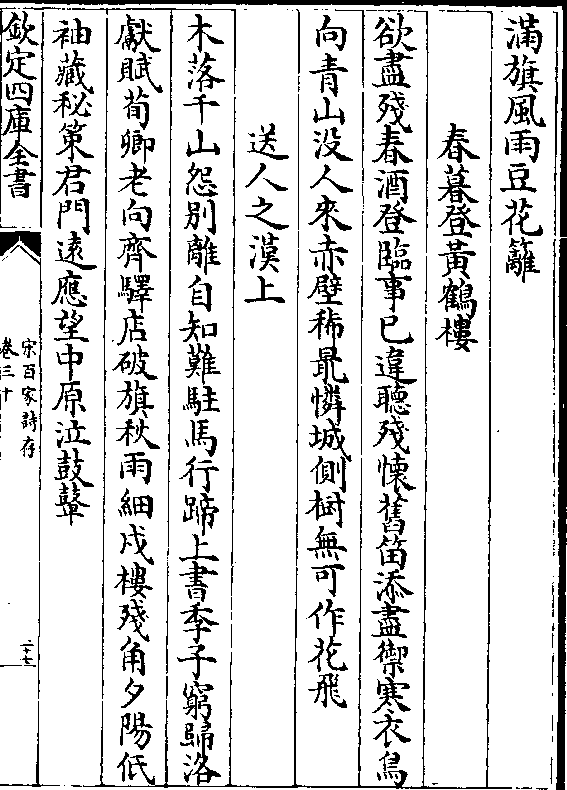 滿旗風雨豆花籬
春暮登黃鶴樓
欲盡殘春酒登臨事已違聽殘懷舊笛添盡禦寒衣鳥
向青山没人來赤壁稀最憐城側樹無可作花飛
送人之漠上
木落千山怨别離自知難駐馬行蹄上書季子窮歸洛
獻賦荀卿老向齊驛店破旗秋雨細戍樓殘角夕陽低
袖藏秘策君門遠應望中原泣鼓鼙
欽定四庫全書
宋百家詩存
卷三十
二十七